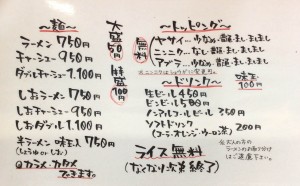 ～麺～
ラーメン 750円
チャーシュー 950円
ダブルチャーシュー 1.100円
しおラーメン 750円
しおチャーシュー 950円
しおダブル 1.100円
半ラーメン 味玉入 750円
(しょうゆ or しお)
◎カタメ・カタメ
できます。
大盛
50円
特盛
100円
～トッピング～
無料
ヤサイ…少なめ・普通・まし・ましまし
ニンニク…なし・普通・まし・ましまし
アブラ…少なめ・普通・まし・ましまし
※ニンニクはしょうがに変更可。
味玉 100円
～ドリンク～
生ビール 450円
ビンビール 500円
ノンアルコールビール 350円
ソフトドリンク
(コーラ・オレンジ・ウーロン茶) 200円
ライス 無料
(なくなり次第終了)
※大人の方の
ラーメンのお取り分け
はご遠慮下さい。